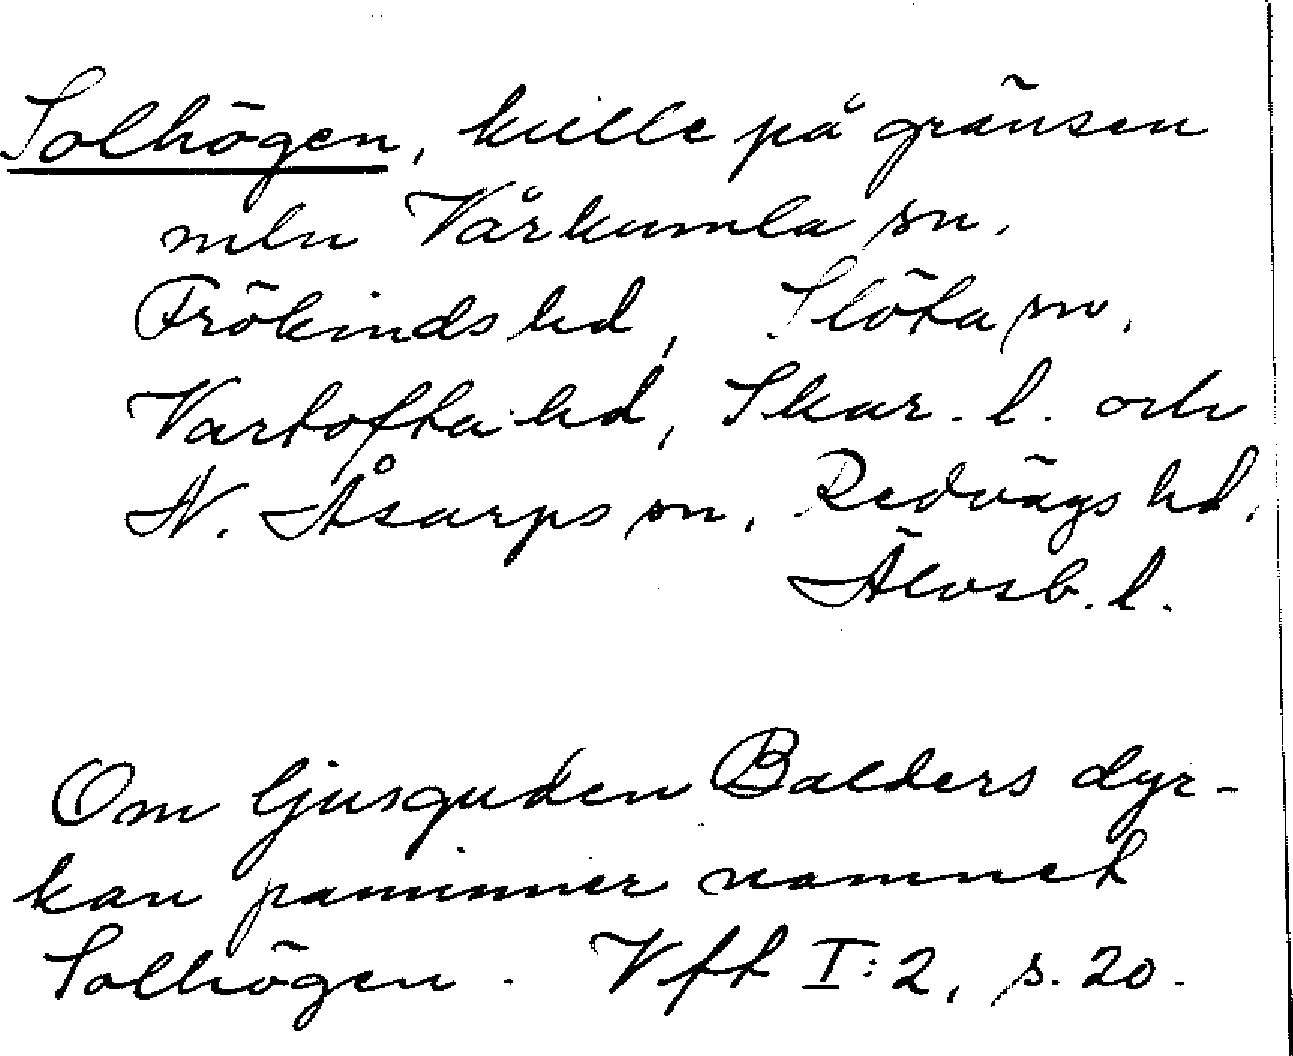 Solhögen, kulle på gränsen
mln Vårkumla sn,
Frökinds hd, Slöta sn,
Vartofta hd, Skar. l. och
N. Åsarps sn, Redvägs hd,
Älvsb. l.
Om ljusguden Balders dyr-
kan paminner namnet
Solhögen. Vft I:2, s. 20.